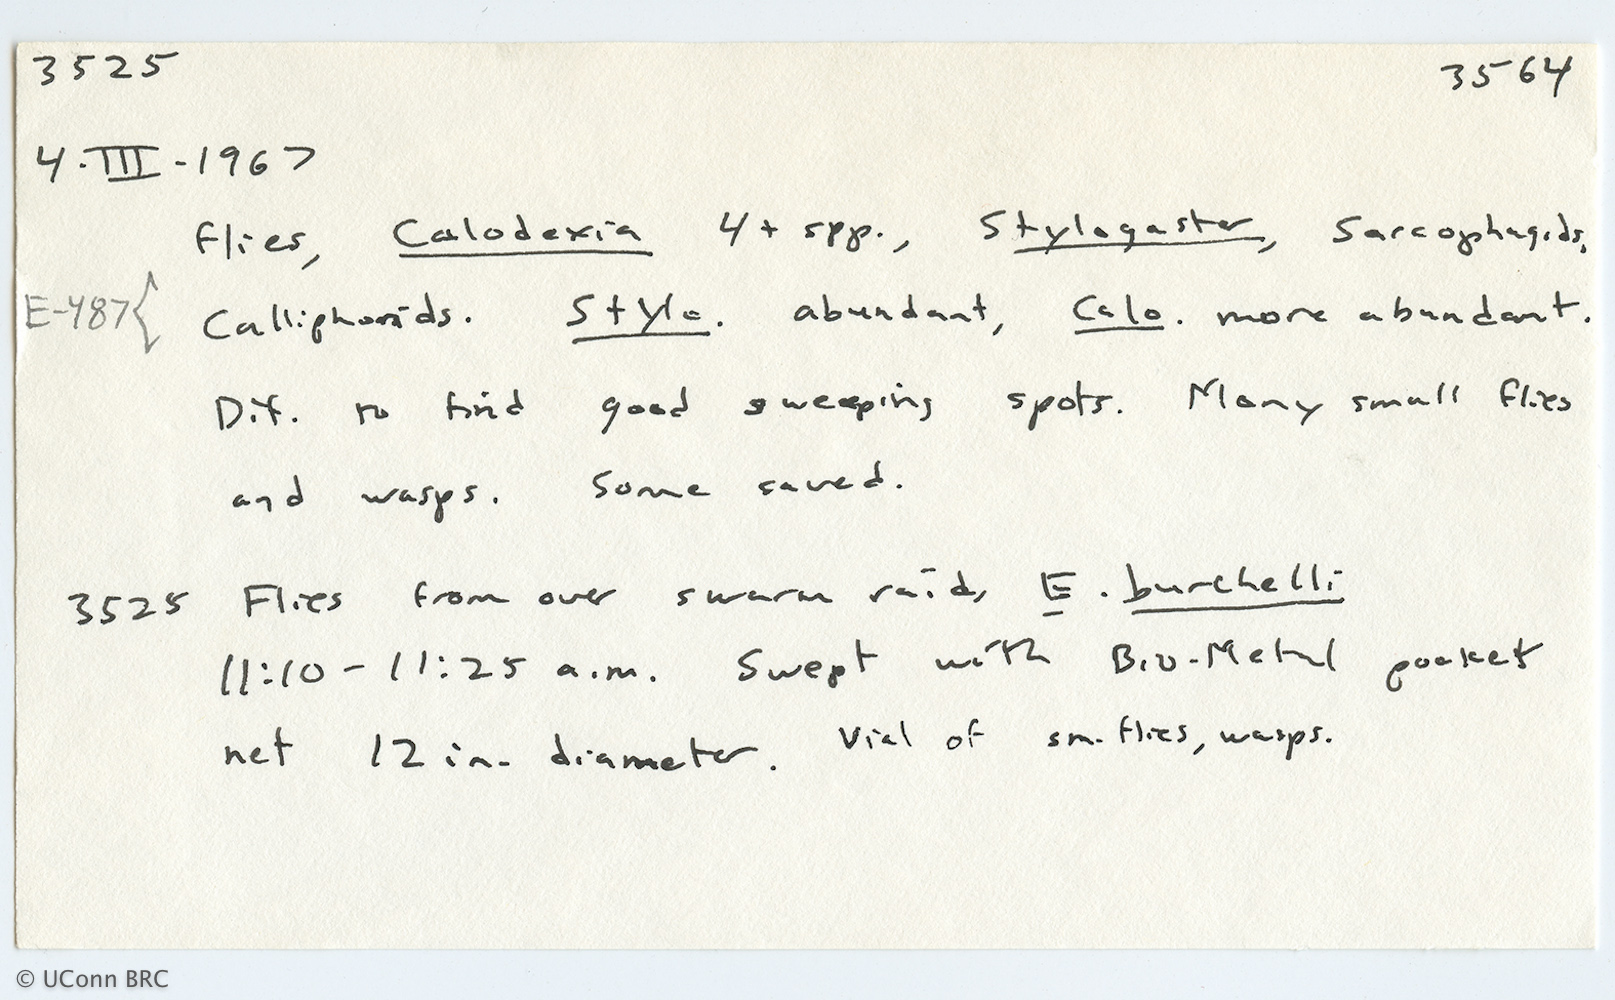 3525 3564
4-III-1967
flies, Calodexia 4+ spp., Stylogaster, Sarcophagids,
E-487{ Calliphorids. Stylo. abundant, Calo. more abundant.
Dif. to find good sweeping spots. Many small flies
and wasps. Some saved.
3525 Flies from over swarm raid, E. burchelli
11:10-11:25 a.m. Swept with Bio-Metal pocket
net 12 in. diameter. Vial of sm. flies, wasps.
© UConn BRC